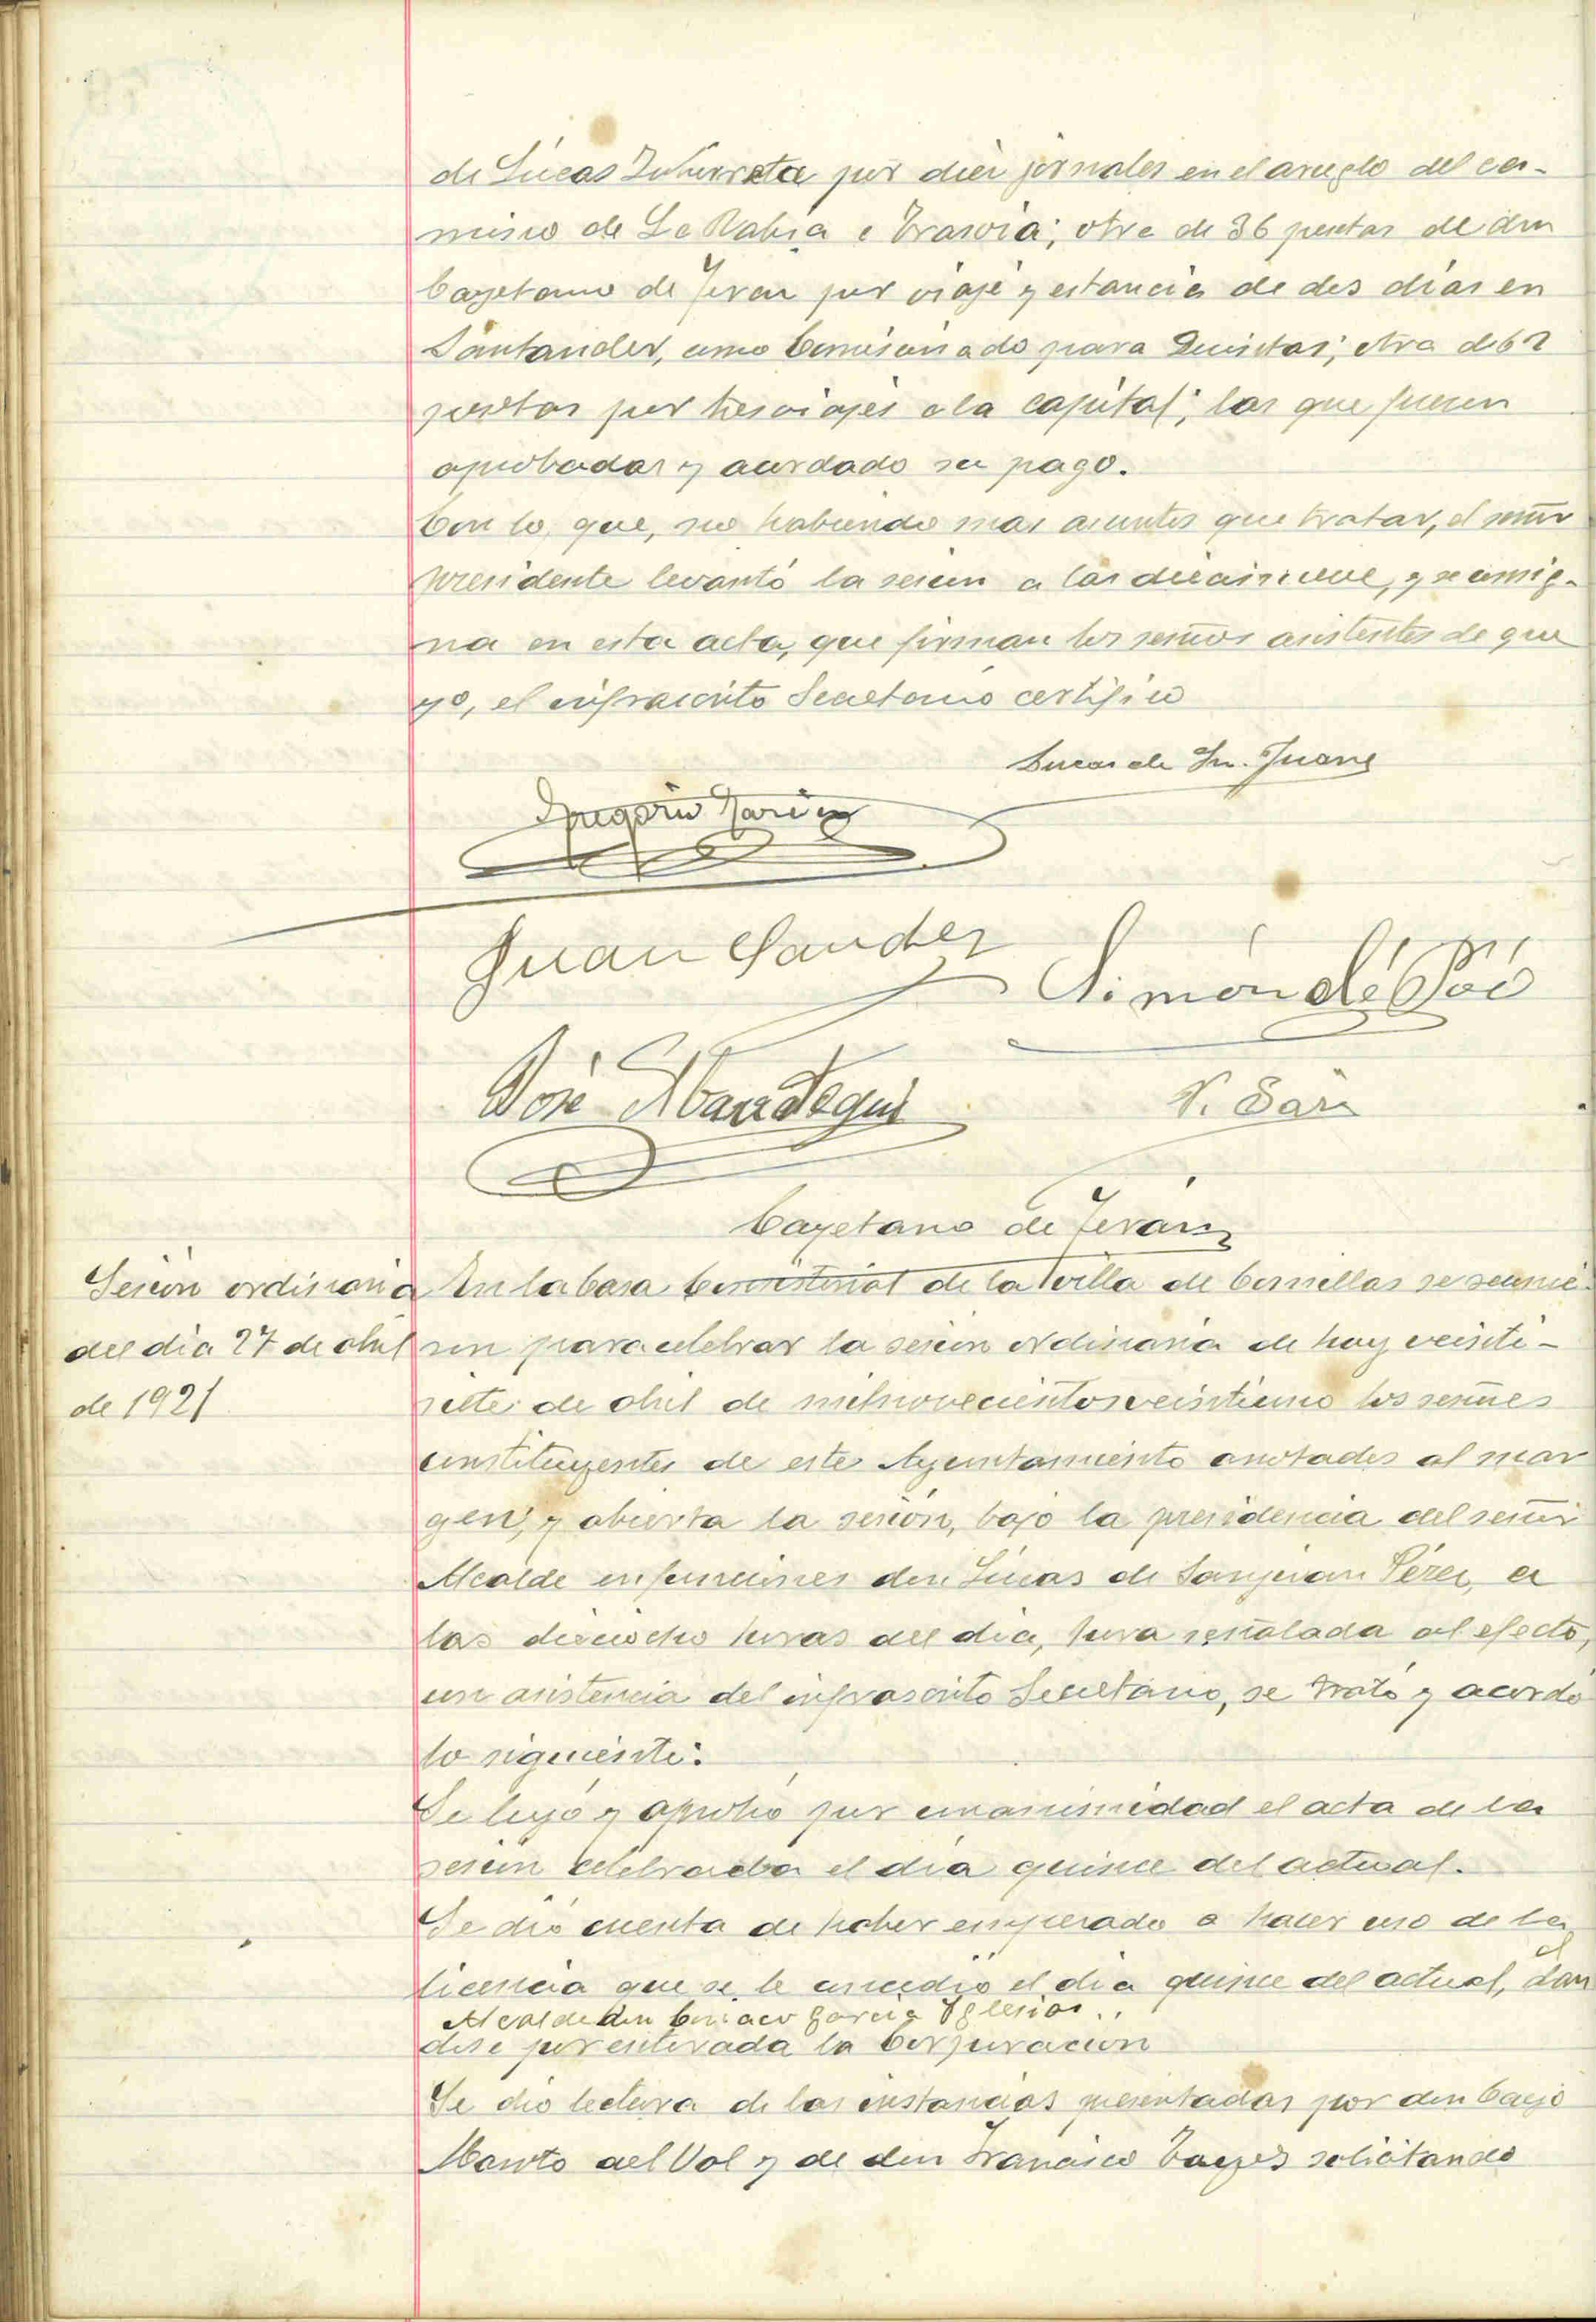 de Lucas Iturrate por diez jornales en el arreglo del ca-
mino de La Rabia a Trasvia; otra de 36 pesetas de don
Cayetano de Teran por viaje y estancia de dos dias en
Santander, como Comisionado para Quintas; otra de 62
pesetas por tres viajes a la capital; las que fueron
aprobadas y acordado su pago.
Con lo que, no habiendo mas asuntos que tratar, el señor
presidente levantó la sesion a las diecinueve, y se consig-
na en esta acta, que firman los señores asistentes de que
yo, el infrascrito Secretario certifico
Lucas de Sn. Juan
Gregorio Garcia
Juan Sanchez
Simón del Pozo
José Abandegui
V. Saiz
Cayetano de Terán
Sesion ordinaria
del dia 27 de abril
de 1921
En la Casa Consistorial de la Villa de Comillas se reunie-
ron para celebrar la sesion ordinaria de hoy veinti-
siete de abril de mil novecientos veintiuno los señores
constituyentes de este Ayuntamiento anotados al mar
gen, y abierta la sesión, bajo la presidencia del señor
Alcalde en funciones don Lucas de Sanjuan Pérez, a
las dieciocho horas del dia, hora señalada al efecto,
con asistencia del infrascrito Secretario, se trató y acordó
lo siguiente:
Se leyó y aprobó por unanimidad el acta de la
sesion celebrada el dia quince del actual.
Se dió cuenta de haber empezado a hacer uso de la
licencia que se le concedió el dia quince del actual, el dan
Alcalde don Ciriaco Garcia Yglesias
dose por enterada la Corporacion
Se dió lectura de las instancias presentadas por don Cayo
Manto del Val y de don Francisco solicitando